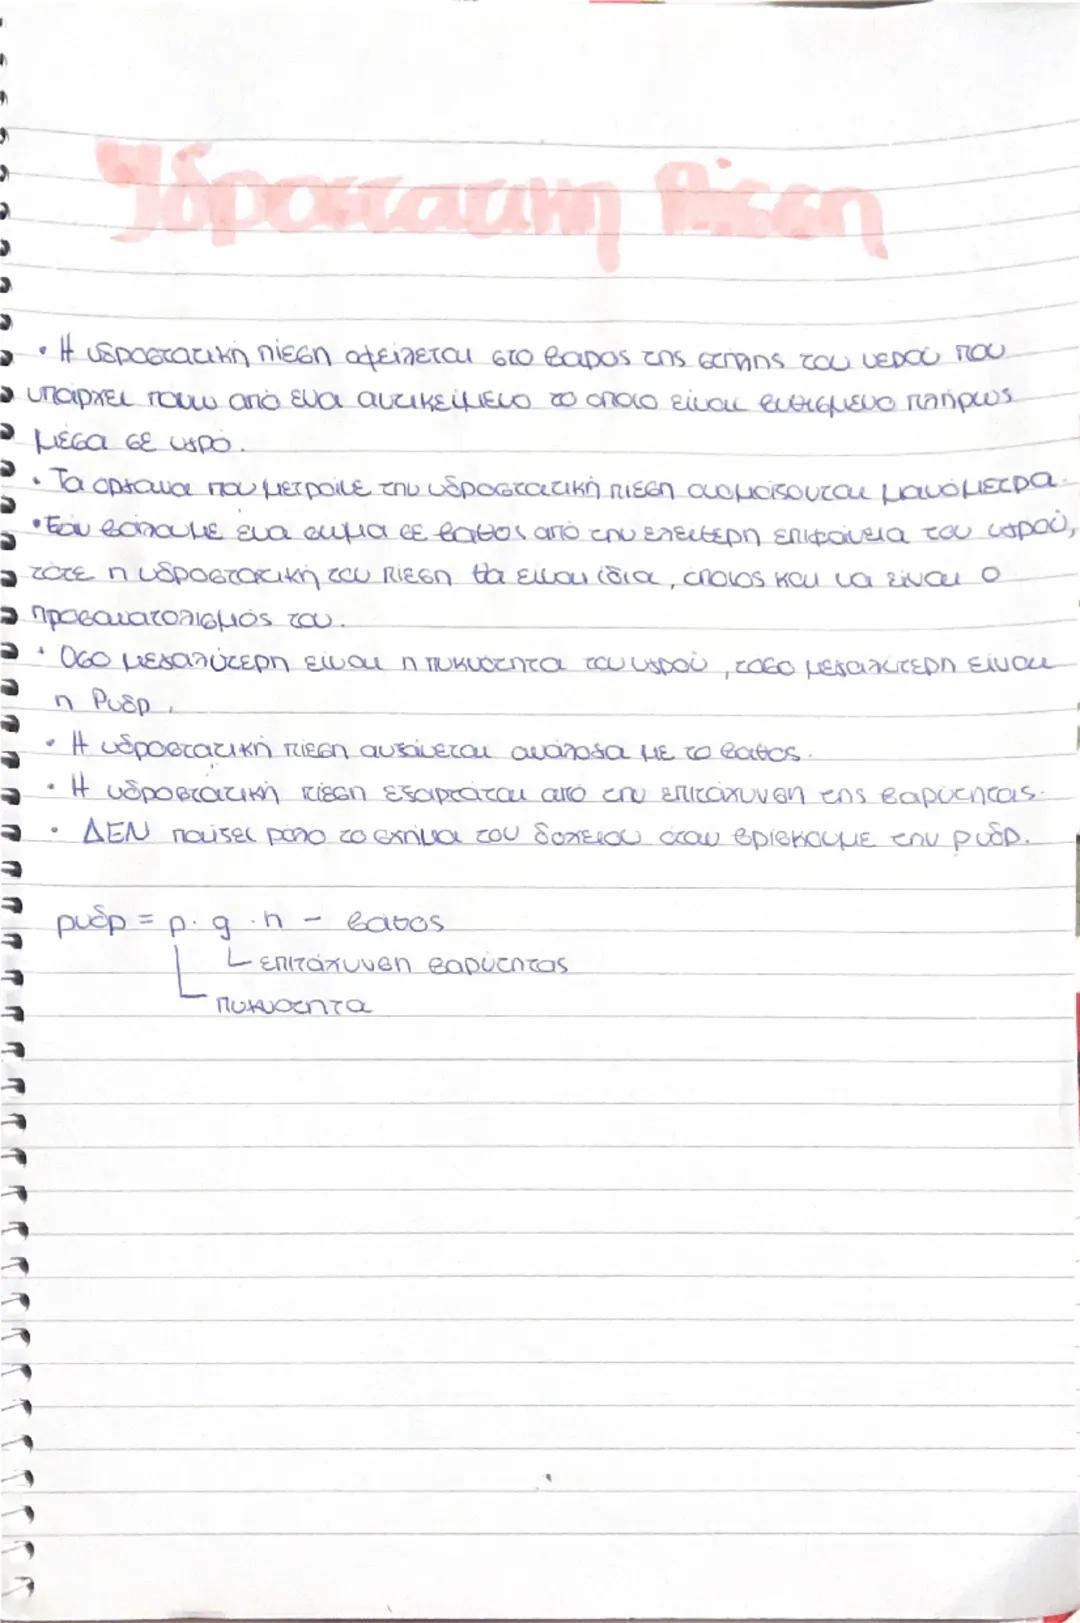 Υδροστατική Πίεση
• Η υδροστατική πίεση οφείλεται στο βάρος της στήλης του νερού που
υπάρχει πάνω από ένα αντικείμενο το οποίο είναι βυθισμένο πλήρως
μέσα σε υγρό.
• Τα όργανα που μετράμε την υδροστατική πίεση ονομάζονται μανόμετρα.
• Εάν βάλουμε ένα σώμα σε βάθος από την ελεύθερη επιφάνεια του υγρού,
τότε η υδροστατική του πίεση θα είναι ίδια, όποιος και να είναι ο
προσανατολισμός του.
• Όσο μεγαλύτερη είναι η πυκνότητα του υγρού, τόσο μεγαλύτερη είναι
η Ρυδρ.
• Η υδροστατική πίεση αυξάνεται ανάλογα με το βάθος.
• Η υδροστατική πίεση εξαρτάται από την επιτάχυνση της βαρύτητας.
• ΔΕΝ παίζει ρόλο το σχήμα του δοχείου όταν βρίσκουμε την ρυδρ.
ρυδρ = ρ · g · h - βάθος
επιτάχυνση βαρύτητας
πυκνότητα